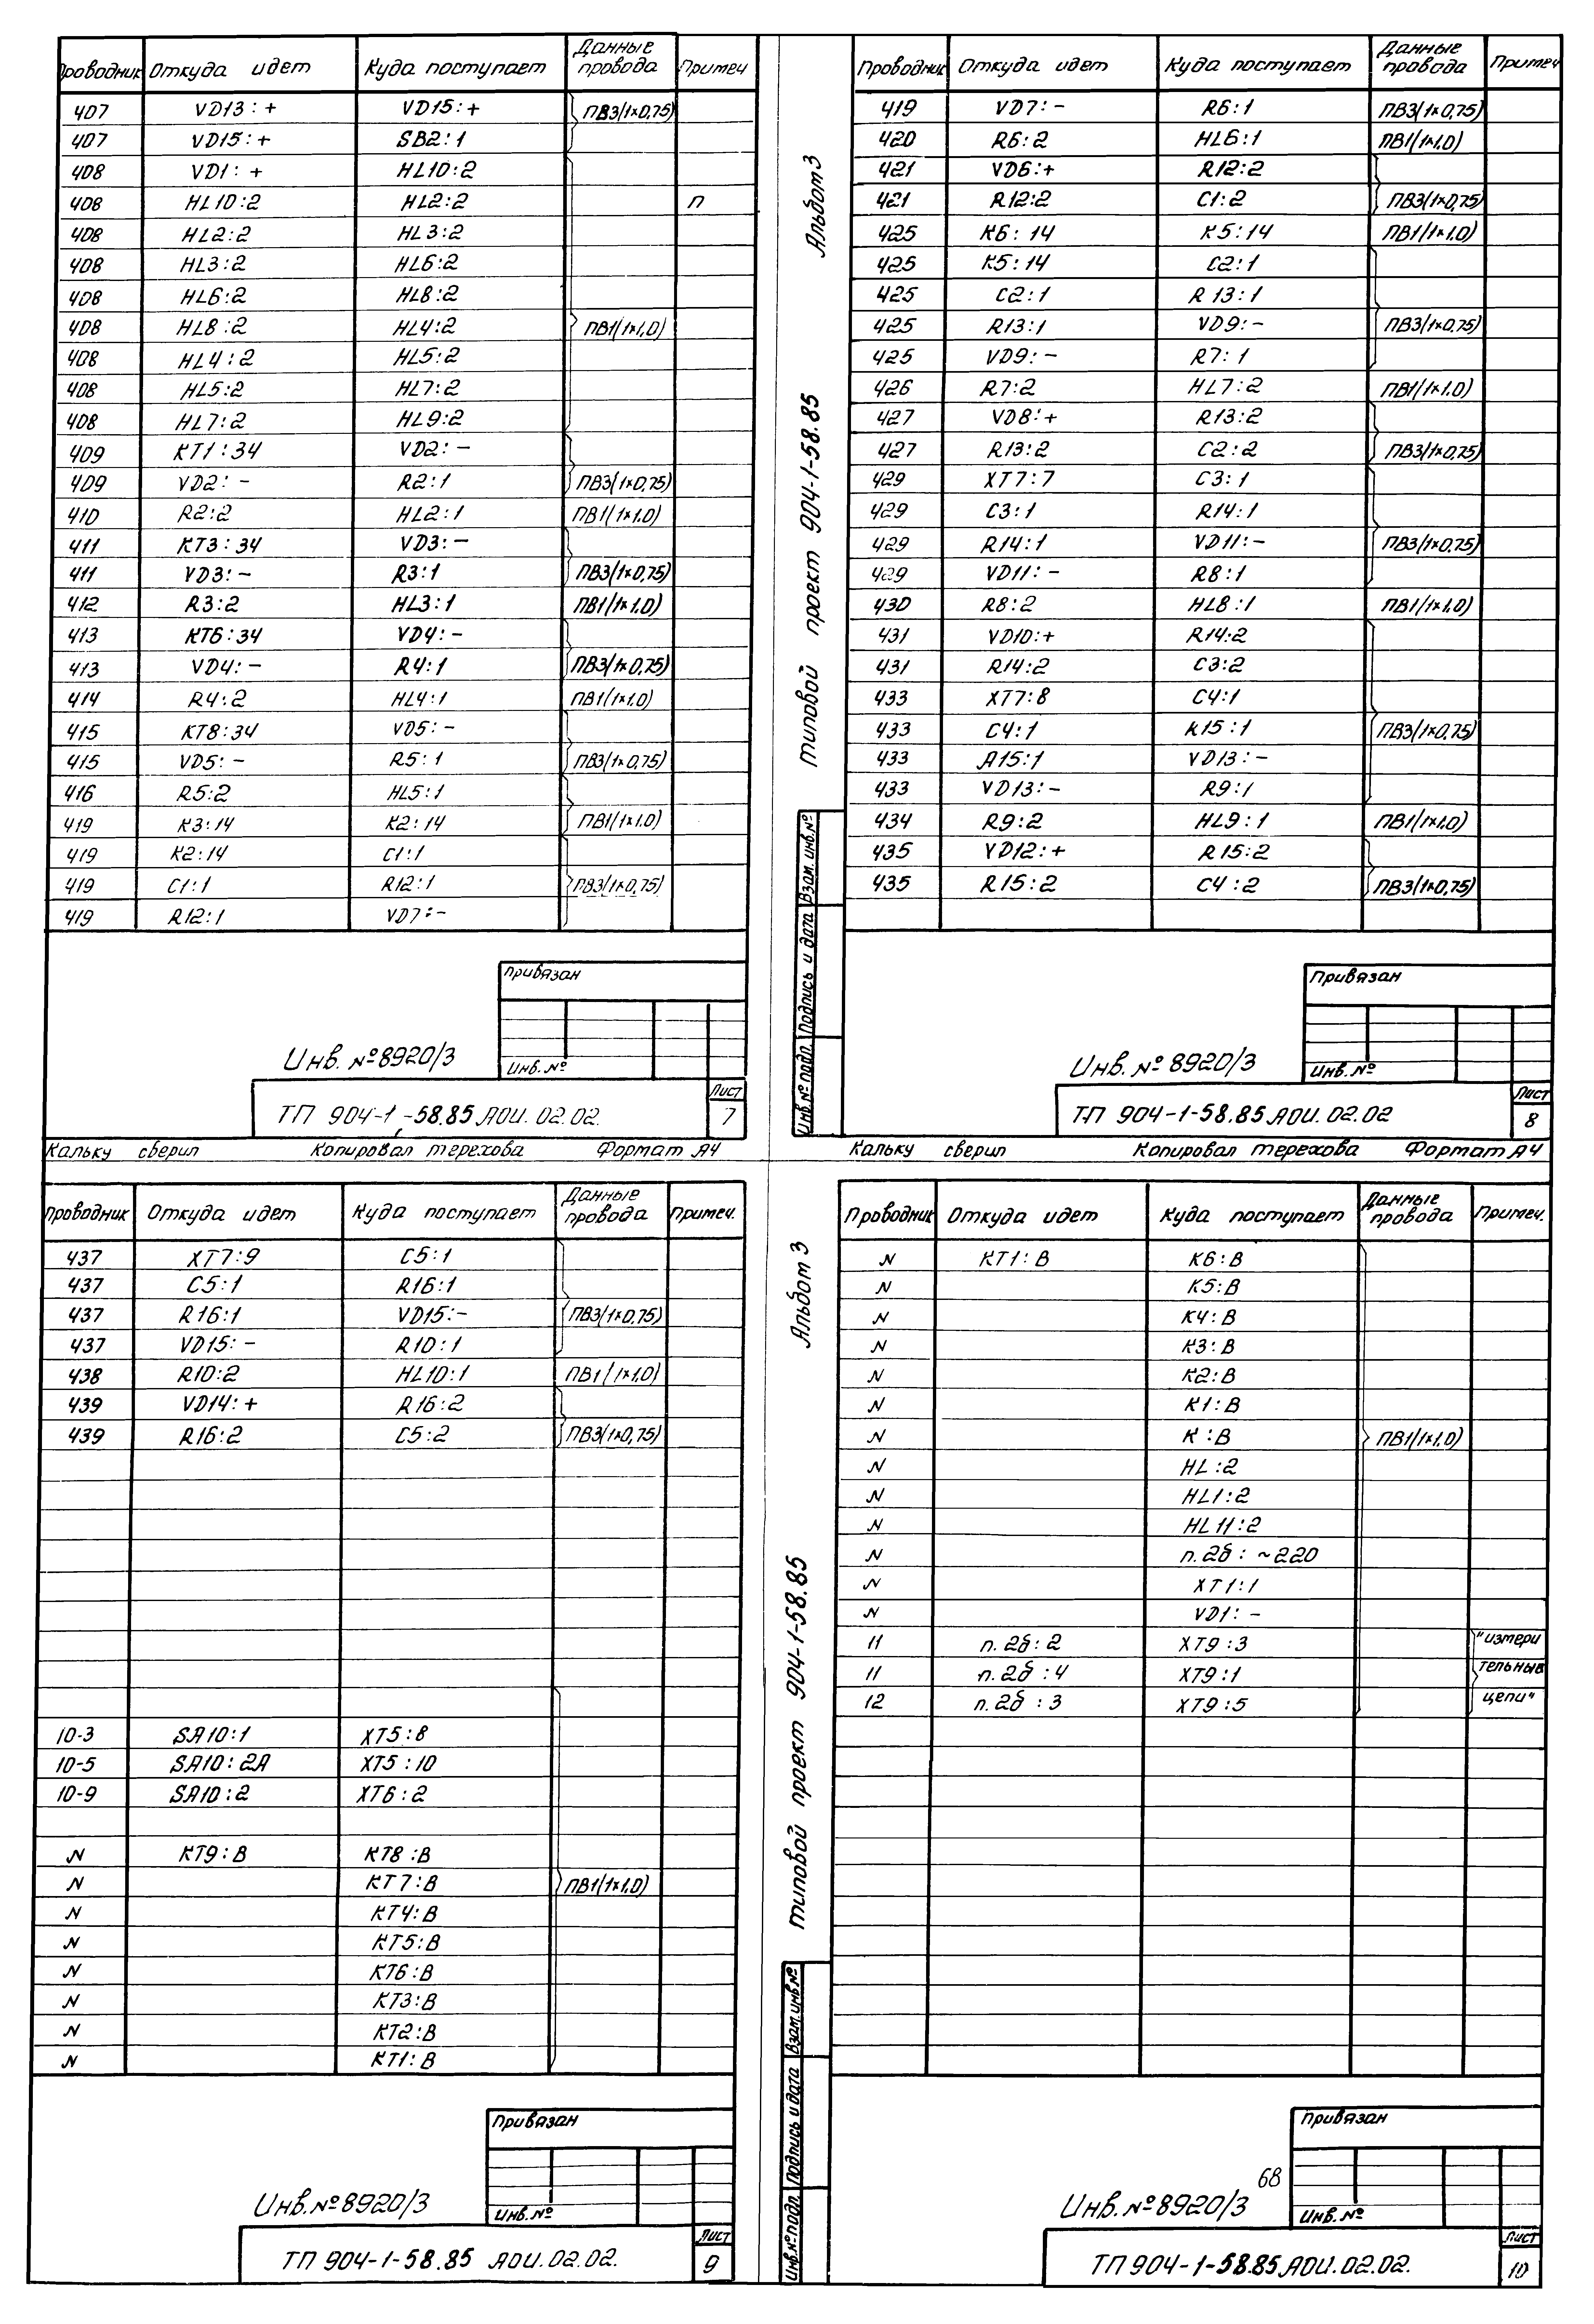 Проводник Откуда идет Куда поступает Данные провода Примеч
407 VD13:+ VD15:+ ПВ3(1×0,75)
407 VD15:+ SB2:1
408 VD1:+ HL10:2
408 HL10:2 HL2:2 п
408 HL2:2 HL3:2
408 HL3:2 HL6:2
408 HL6:2 HL8:2
408 HL8:2 HL4:2 ПВ1(1×1,0)
408 HL4:2 HL5:2
408 HL5:2 HL7:2
408 HL7:2 HL9:2
409 КТ1:34 VD2:-
409 VD2:- R2:1 ПВ3(1×0,75)
410 R2:2 HL2:1 ПВ1(1×1,0)
411 КТ3:34 VD3:-
411 VD3:- R3:1 ПВ3(1×0,75)
412 R3:2 HL3:1 ПВ1(1×1,0)
413 КТ6:34 VD4:-
413 VD4:- R4:1 ПВ3(1×0,75)
414 R4:2 HL4:1 ПВ1(1×1,0)
415 КТ8:34 VD5:-
415 VD5:- R5:1 ПВ3(1×0,75)
416 R5:2 HL5:1
419 К3:14 К2:14 ПВ1(1×1,0)
419 К2:14 С1:1
419 С1:1 R12:1 ПВ3(1×0,75)
419 R12:1 VD7:-
Привязан
Инв. №
Инв. №8920/3
ТП 904-1-58.85 АОИ.02.02.
Лист
7
Кальку сверил Копировал Терехова Формат А4
Альбом 3
типовой проект 904-1-58.85
Инв.№ подл. Подпись и дата Взам. инв.№
Проводник Откуда идет Куда поступает Данные провода Примеч
419 VD7:- R6:1 ПВ3(1×0,75)
420 R6:2 HL6:1 ПВ1(1×1,0)
421 VD6:+ R12:2
421 R12:2 С1:2 ПВ3(1×0,75)
425 К6:14 К5:14 ПВ1(1×1,0)
425 К5:14 С2:1
425 С2:1 R13:1
425 R13:1 VD9:- ПВ3(1×0,75)
425 VD9:- R7:1
426 R7:2 HL7:2 ПВ1(1×1,0)
427 VD8:+ R13:2
427 R13:2 С2:2 ПВ3(1×0,75)
429 ХТ7:7 С3:1
429 С3:1 R14:1
429 R14:1 VD11:- ПВ3(1×0,75)
429 VD11:- R8:1
430 R8:2 HL8:1 ПВ1(1×1,0)
431 VD10:+ R14:2
431 R14:2 С3:2
433 ХТ7:8 С4:1
433 С4:1 R15:1 ПВ3(1×0,75)
433 R15:1 VD13:-
433 VD13:- R9:1
434 R9:2 HL9:1 ПВ1(1×1,0)
435 VD12:+ R15:2
435 R15:2 С4:2 ПВ3(1×0,75)
Привязан
Инв. №
Инв. №8920/3
ТП 904-1-58.85 АОИ.02.02
Лист
8
Кальку сверил Копировал Терехова Формат А4
Проводник Откуда идет Куда поступает Данные провода Примеч.
437 ХТ7:9 С5:1
437 С5:1 R16:1
437 R16:1 VD15:- ПВ3(1×0,75)
437 VD15:- R10:1
438 R10:2 HL10:1 ПВ1(1×1,0)
439 VD14:+ R16:2
439 R16:2 С5:2 ПВ3(1×0,75)
10-3 SA10:1 ХТ5:8
10-5 SA10:2А ХТ5:10
10-9 SA10:2 ХТ6:2
N КТ9:В КТ8:В
N КТ7:В ПВ1(1×1,0)
N КТ4:В
N КТ5:В
N КТ6:В
N КТ3:В
N КТ2:В
N КТ1:В
Привязан
Инв. №
Инв.№8920/3
ТП 904-1-58.85 АОИ.02.02.
Лист
9
Альбом 3
типовой проект 904-1-58.85
Инв.№ подл. Подпись и дата Взам. инв.№
Проводник Откуда идет Куда поступает Данные провода Примеч.
N КТ1:В К6:В
N К5:В
N К4:В
N К3:В
N К2:В
N К1:В
N К:В ПВ1(1×1,0)
N HL:2
N HL1:2
N HL11:2
N п.2б:~220
N ХТ1:1
N VD1:-
11 п.2б:2 ХТ9:3 "измери
11 п.2б:4 ХТ9:1 тельные
12 п.2б:3 ХТ9:5 цепи"
Привязан
Инв. №
68
Инв.№8920/3
ТП 904-1-58.85 АОИ.02.02.
Лист
10